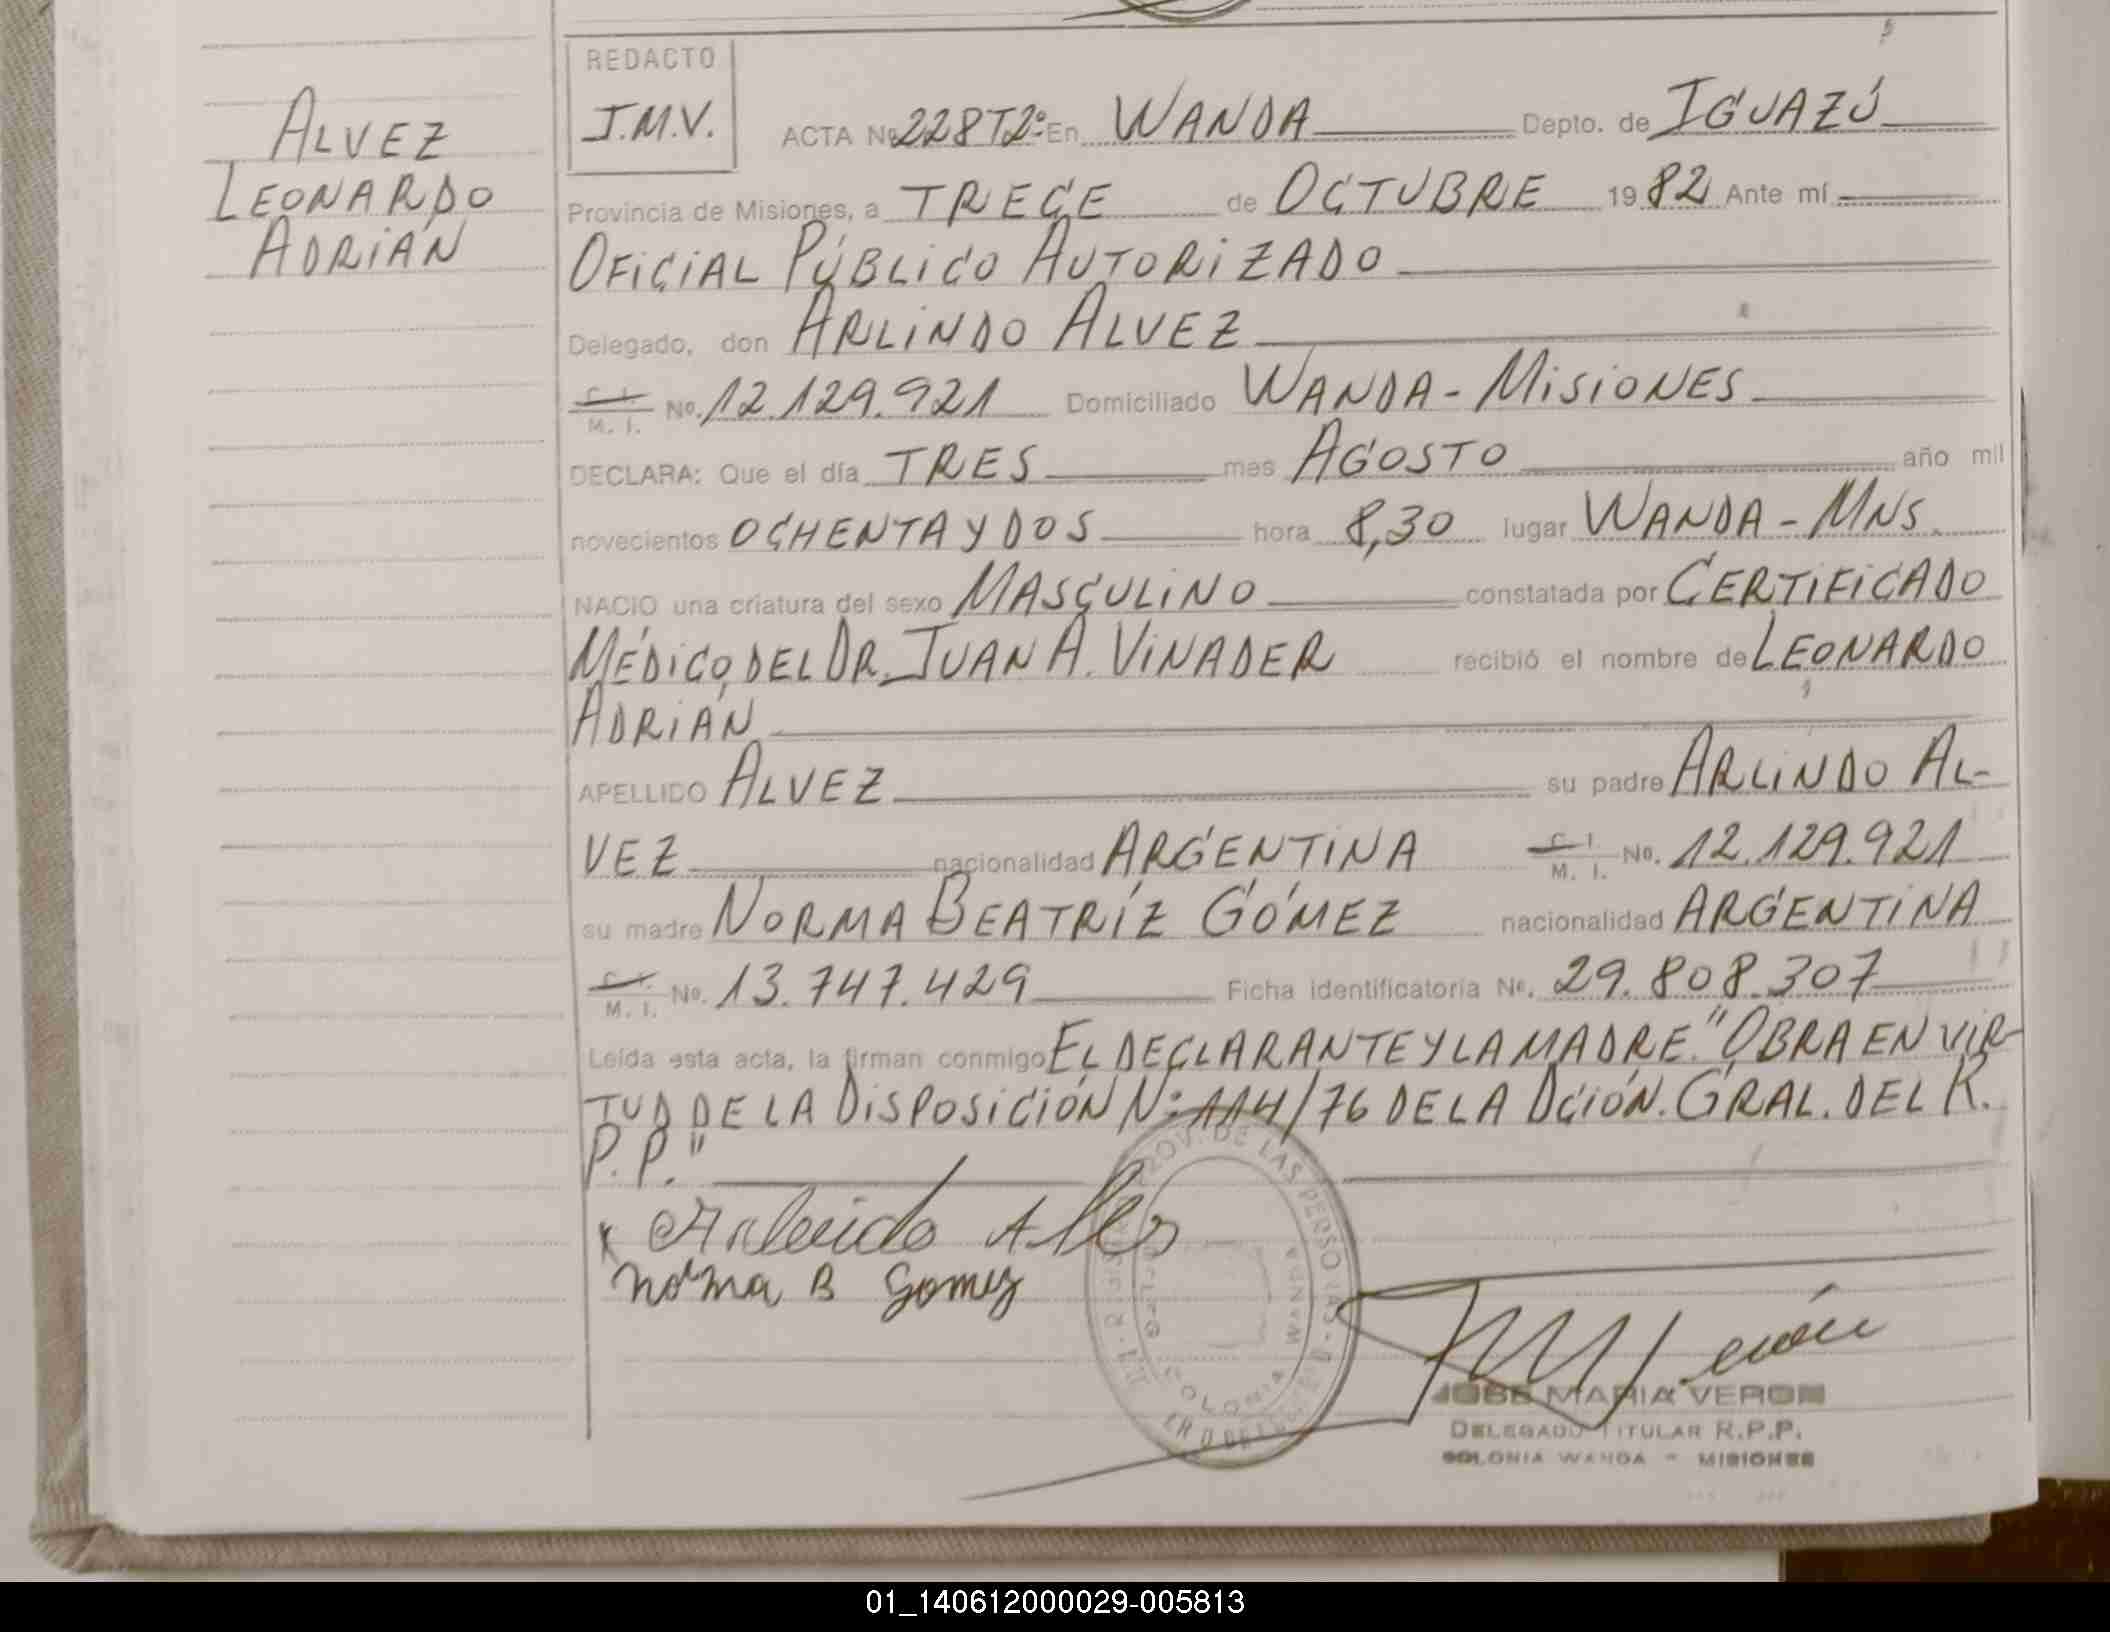 ALVEZ
LEONARDO
ADRIÁN
REDACTO
J.M.V.
ACTA No 228T2º En WANDA Depto. de IGUAZÚ
Provincia de Misiones, a TRECE de OCTUBRE 1982 Ante mí
OFICIAL PÚBLICO AUTORIZADO
Delegado, don ARLINDO ALVEZ
C. I.
M. I. No. 12.129.921 Domiciliado WANDA - MISIONES
DECLARA: Que el día TRES mes AGOSTO año mil
novecientos OCHENTA Y DOS hora 8,30 lugar WANDA - MNS.
NACIO una criatura del sexo MASCULINO constatada por CERTIFICADO
MÉDICO, DEL DR. JUAN A. VINADER recibió el nombre de LEONARDO
ADRIÁN
APELLIDO ALVEZ su padre ARLINDO AL-
VEZ nacionalidad ARGENTINA C. I. M. I. No. 12.129.921
su madre NORMA BEATRÍZ GÓMEZ nacionalidad ARGENTINA
C. I.
M. I. No. 13.747.429 Ficha identificatoria No. 29.808.307
Leída esta acta, la firman conmigo EL DECLARANTE Y LA MADRE. "OBRA EN VIR-
TUD DE LA DISPOSICIÓN Nº 114/76 DE LA DCIÓN. GRAL. DEL R.
P.P."
Norma B Gomez
COLONIA WANDA
JOSE MARIA VERON
DELEGADO TITULAR R.P.P.
COLONIA WANDA - MISIONES
01_140612000029-005813